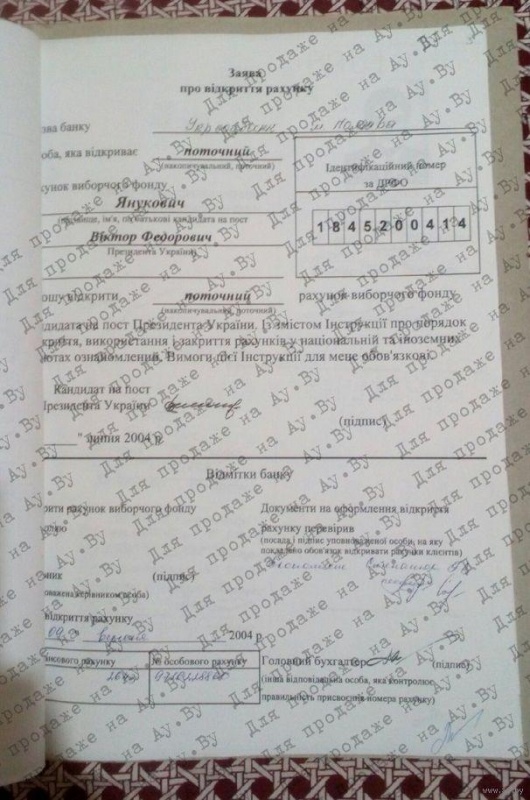 Заява
про відкриття рахунку
зва банку
оба, яка відкриває поточний
(накопичувальний, поточний)
Ідентифікаційний номер
за ДРФО
1845200414
хунок виборчого фонду
Янукович
(прізвище, ім'я, по батькові кандидата на пост
Віктор Федорович
Президента України)
ошу відкрити поточний рахунок виборчого фонду
(накопичувальний, поточний)
дидата на пост Президента України. Із змістом Інструкції про порядок
криття, використання і закриття рахунків у національній та іноземних
лютах ознайомлений. Вимоги цієї Інструкції для мене обов'язкові.
Кандидат на пост
Президента України
(підпис)
" липня 2004 р.
Відмітки банку
крити рахунок виборчого фонду
Документи на оформлення відкриття
рахунку перевірив
(посада і підпис уповноваженої особи, на яку
покладено обов'язок відкривати рахунки клієнтів)
(підпис)
відкриття рахунку
2004 р.
нсового рахунку № особового рахунку
Головний бухгалтер (підпис)
(інша відповідальна особа, яка контролює
правильність присвоєння номера рахунку)
Для продаже на Ау.Ву